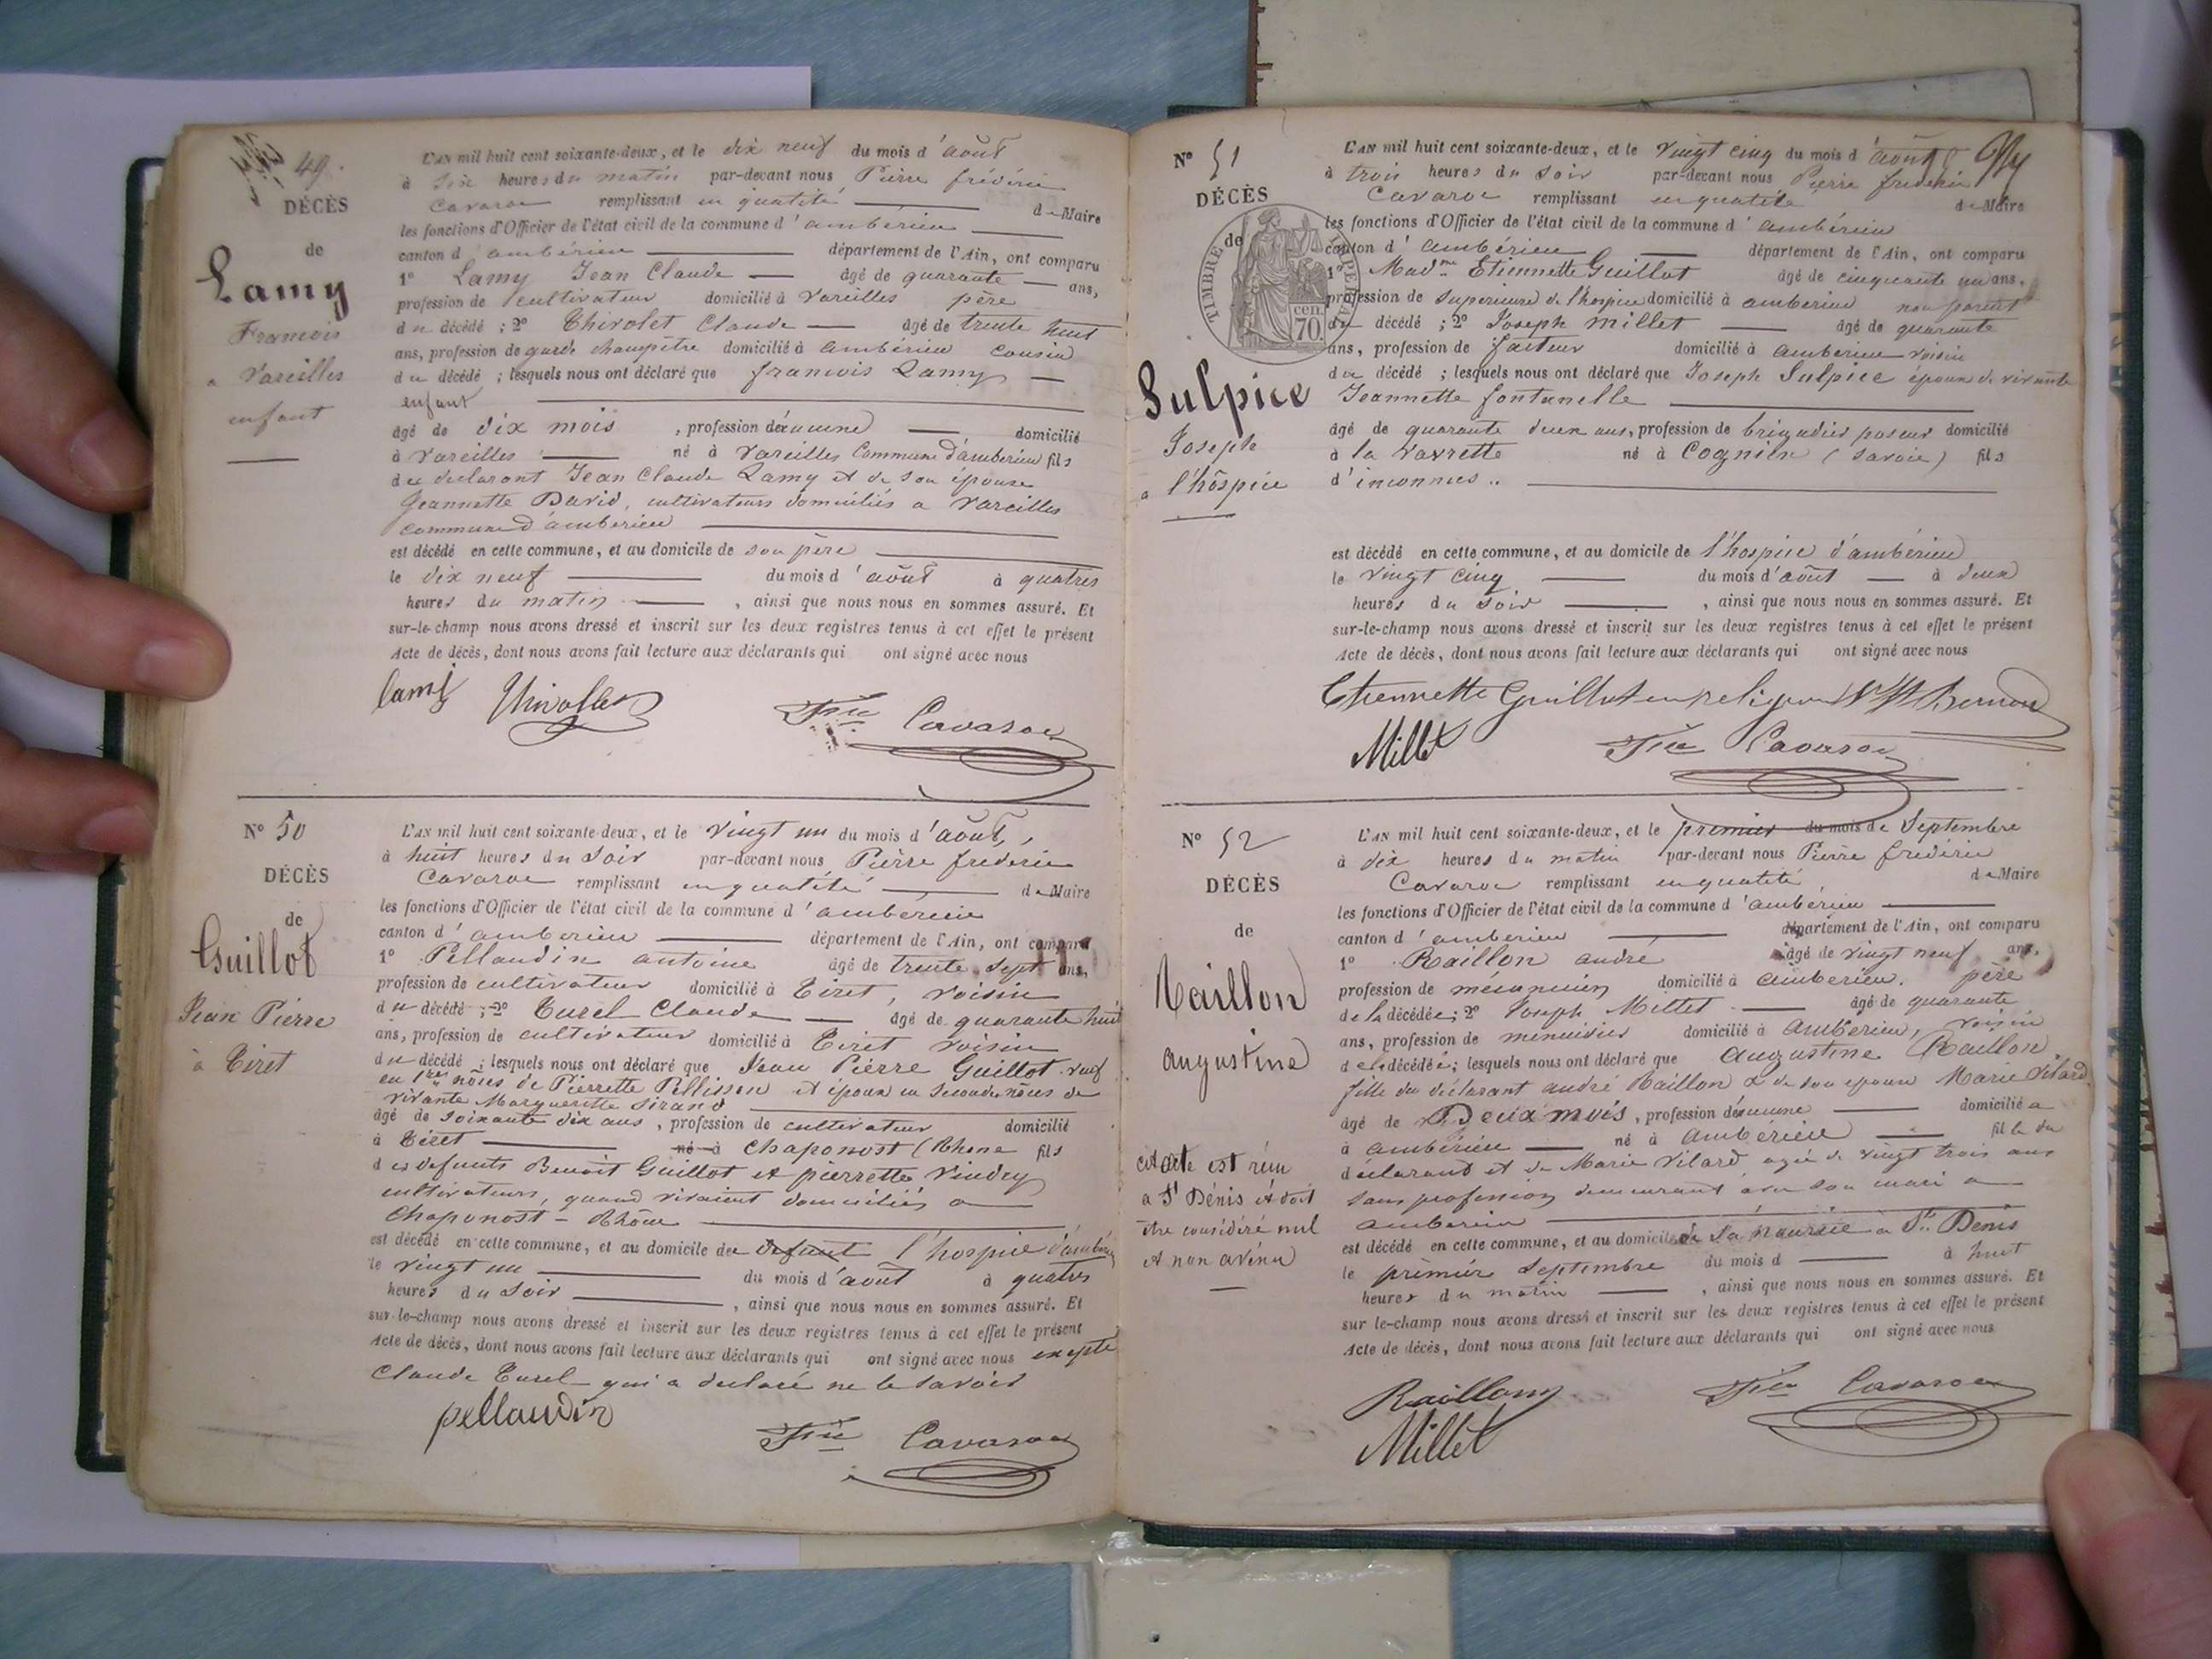 49.
DÉCÈS
de
Lamy
François
a Vareilles
enfant
L'AN mil huit cent soixante-deux, et le dix neuf du mois d'août
à six heures du matin par-devant nous Pierre frédéric
Cavaroc remplissant en qualité de Maire
les fonctions d'Officier de l'état civil de la commune d'ambérieu
canton d'ambérieu département de l'Ain, ont comparu
1° Lamy Jean Claude âgé de quarante ans,
profession de cultivateur domicilié à Vareilles père
du décédé ; 2° Thivolet Claude âgé de trente huit
ans, profession de garde champêtre domicilié à ambérieu cousin
du décédé ; lesquels nous ont déclaré que francois Lamy
enfant
âgé de dix mois , profession d'aucune domicilié
à Vareilles né à Vareilles Commune d'amberieu fils
du declarant Jean Claude Lamy et de son épouse
Jeannette David, cultivateurs domiciliés a Vareilles
commune d'amberieu
est décédé en cette commune, et au domicile de son père
le dix neuf du mois d'août à quatres
heures du matin , ainsi que nous nous en sommes assuré. Et
sur-le-champ nous avons dressé et inscrit sur les deux registres tenus à cet effet le présent
Acte de décès, dont nous avons fait lecture aux déclarants qui ont signé avec nous
Lamy Thivollet Fric Cavaroc
N° 50
DÉCÈS
de
Guillot
Jean Pierre
à Tiret
L'AN mil huit cent soixante-deux, et le vingt un du mois d'août,
à huit heures du soir par-devant nous Pierre frederic
Cavaroc remplissant en qualité de Maire
les fonctions d'Officier de l'état civil de la commune d'ambérieu
canton d'amberieu département de l'Ain, ont comparu
1° Pellaudin antoine âgé de trente sept ans,
profession de cultivateur domicilié à Tiret, voisin
du décédé ; 2° Turel Claude âgé de quarante huit
ans, profession de cultivateur domicilié à Tiret voisin
du décédé ; lesquels nous ont déclaré que Jean Pierre Guillot veuf
en 1res nôces de Pierrette Pellisson et époux en secondes nôces de
vivante Marguerette Sirand
âgé de soixante dix ans , profession de cultivateur domicilié
à Tiret né à Chaponost (Rhone fils
des defunts Benoit Guillot et pierrette Vindry
cultivateurs, quand vivaient domiciliés a
Chaponost - Rhône
est décédé en cette commune, et au domicile de defunt l'hospice d'ambérieu
le vingt un du mois d'août à quatres
heures du soir , ainsi que nous nous en sommes assuré. Et
sur-le-champ nous avons dressé et inscrit sur les deux registres tenus à cet effet le présent
Acte de décès, dont nous avons fait lecture aux déclarants qui ont signé avec nous excepté
Claude Turel qui a declaré ne le savoir
pellaudin Fric Cavaroc
N° 51
DÉCÈS
de
TIMBRE IMPERIAL
cen.
70.
Sulpice
Joseph
a l'hôspice
L'AN mil huit cent soixante-deux, et le vingt cinq du mois d'août
à trois heures du soir par-devant nous Pierre frederic
Cavaroc remplissant en qualité de Maire
les fonctions d'Officier de l'état civil de la commune d'ambérieu
canton d'ambérieu département de l'Ain, ont comparu
1° Madme Etiennette Guillot âgé de cinquante un ans,
profession de superieure de l'hospice domicilié à amberieu non parent
du décédé ; 2° Joseph Millet âgé de quarante
ans, profession de facteur domicilié à amberieu voisin
du décédé ; lesquels nous ont déclaré que Joseph Sulpice époux de vivante
Jeannette fontanelle
âgé de quarante deux ans, profession de brigadier poseur domicilié
à la Vavrette né à Cognien (Savoie) fils
d'inconnus..
est décédé en cette commune, et au domicile de l'hospice d'ambérieu
le vingt cinq du mois d'août à deux
heures du soir , ainsi que nous nous en sommes assuré. Et
sur-le-champ nous avons dressé et inscrit sur les deux registres tenus à cet effet le présent
Acte de décès, dont nous avons fait lecture aux déclarants qui ont signé avec nous
Etiennette Guillot en religion Bernard
Millet Fric Cavaroc
N° 52
DÉCÈS
de
Raillon
augustine
cet acte est reçu
a St Dénis et doit
être considéré nul
et non avenu
L'AN mil huit cent soixante-deux, et le premier du mois de Septembre
à dix heures du matin par-devant nous Pierre frédéric
Cavaroc remplissant en qualité de Maire
les fonctions d'Officier de l'état civil de la commune d'ambérieu
canton d'amberieu département de l'Ain, ont comparu
1° Raillon andré âgé de vingt neuf ans.
profession de mécanicien domicilié à amberieu. père
de la décédée; 2° Joseph Millet âgé de quarante
ans, profession de menuisier domicilié à amberieu, voisin
de la décédée; lesquels nous ont déclaré que augustine Raillon
fille du déclarant andré Raillon & de son epouse Marie Vilard
âgé de Deux mois, profession d'aucune domicilié a
à ambérieu né à ambérieu fille du
déclarant et de Marie Vilard agée de vingt trois ans
sans profession demeurant avec son mari a
amberieu
est décédé en cette commune, et au domicile de sa nourrice a St Denis
le premier Septembre du mois d à huit
heures du matin , ainsi que nous nous en sommes assuré. Et
sur le-champ nous avons dressé et inscrit sur les deux registres tenus à cet effet le présent
Acte de décès, dont nous avons fait lecture aux déclarants qui ont signé avec nous
Raillon Fric Cavaroc
Millet